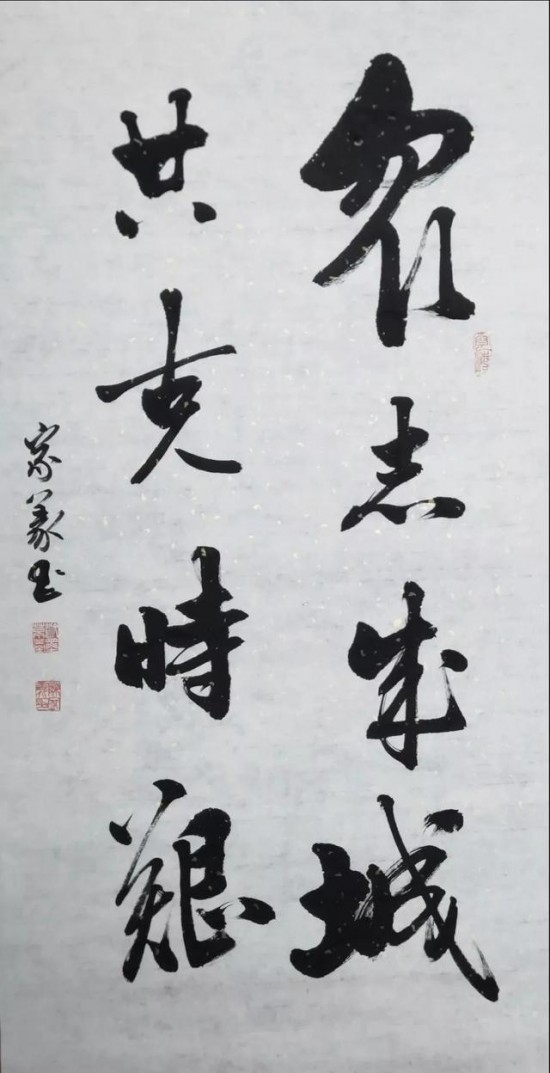 眾志成城
共克時艱
家義书